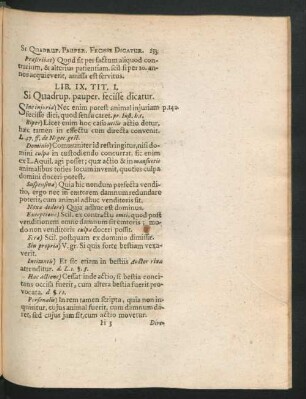 SI QUADRUP. PAUPER. FECISSE DICATUR.
Præscribat) Quod sit per factum aliquod con-
trarium, & alterius patientiam. scil. si per 10. an-
nos acquieverit, amissa est servitus.
LIB. IX. TIT. I.
Si Quadrup. pauper. fecisse dicatur.
Sine injuria) Nec enim potest animal injuriam
fecisse dici, quod sensu caret.
Licet enim hoc casu utilis actio detur,
hæc tamen in effectu cum directa convenit.
Dominio) Communiter id restringitur, nisi domi-
ni culpa in custodiendo concurrat. sic enim
ex L. Aquil. agi posset; quæ actio & in mansuetis
animalibus turius locum invenit, quoties culpa
domini doceri potest.
Suspensiva) Quia hic nondum perfecta vendi-
tio, ergo nec in emtorem damnum redundare
poterit, cum animal adhuc venditoris sit.
Noxa dedere) Quia adhuc est dominus.
Exceptione) Scil. ex contractu emti, quod post
venditionem ante damnum sit emtoris; mo-
do non venditoris culpa doceri possit.
Fera) Scil. postquam ex dominio dimissæ.
Sin propria) V. gr. Si quis forte bestiam vexa-
verit.
Incitatio) Et sic etiam in bestiis
attenditur.
Hac actione) Cessat inde actio, si bestia conci-
tans occisa fuerit, cum altera bestia fuerit pro-
vocata.
Personalis) In rem tamen scripta, quia non in-
quiritur, cujus animal fuerit, cum damnum da-
ret, sed cujus jam sit, cum actio movetur.
H 3